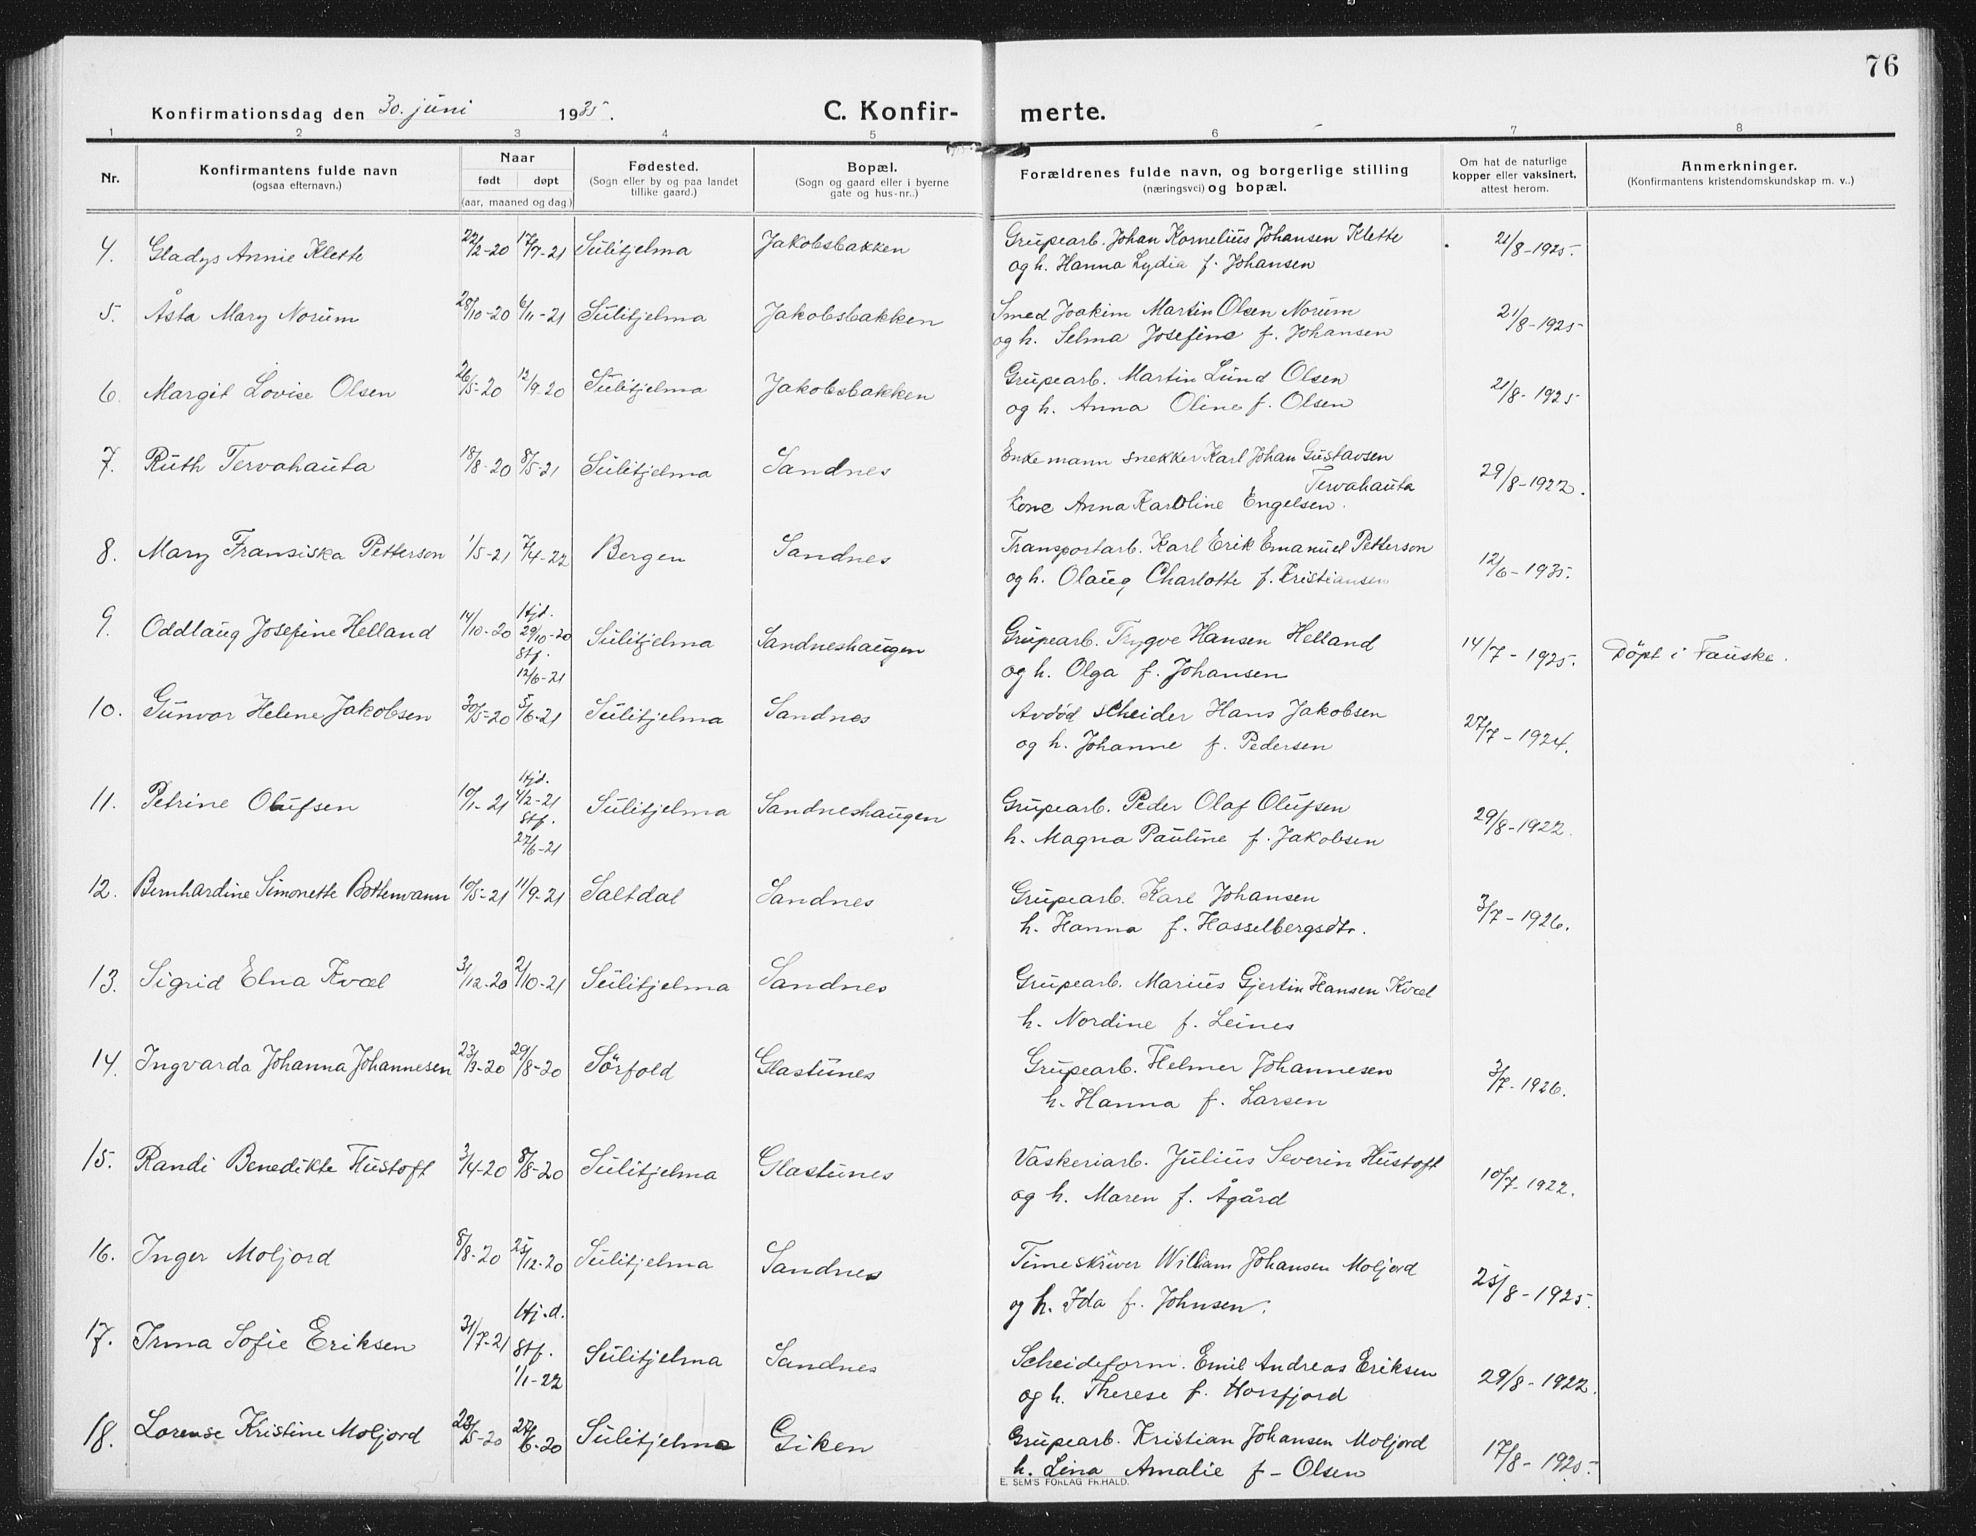 76
Konfirmationsdag den 30. juni 1935.
C. Konfirmerte.
1 2 3 4 5 6 7 8
Nr.
Konfirmantens fulde navn
(ogsaa efternavn.)
Naar
født døpt
(aar, maaned og dag.)
Fødested.
(Sogn eller by og paa landet
tillike gaard.)
Bopæl.
(Sogn og gaard eller i byerne
gate og hus-nr..)
Forældrenes fulde navn, og borgerlige stilling
(næringsvei) og bopæl.
Om hat de naturlige
kopper eller vaksinert,
attest herom.
Anmerkninger.
(Konfirmantens kristendomskundskap m. v..)
4. Gladys Annie Klette 22/2-20 17/7-21 Sulitjelma Jakobsbakken Grupearb. Johan Kornelius Johansen Klette 21/8-1925.
og h. Hanna Lydia f. Johansen
5. Åsta Mary Norum 28/10-20 6/11-21 Sulitjelma Jakobsbakken Smed Joakim Martin Olsen Norum 21/8-1925
og h. Selma Josefine f. Johansen
6. Margit Lovise Olsen 26/5-20 12/9-20 Sulitjelma Jakobsbakken Grupearb. Martin Lund Olsen 21/8-1925
og h. Anna Oline f. Olsen
7. Ruth Tervahauta 18/8-20 8/5-21 Sulitjelma Sandnes Enkemann snekker Karl Johan Gustavsen
Tervahauta 29/8-1922.
kone Anna Karoline Engelsen.
8. Mary Fransiska Petterson 1/5-21 7/4-22 Bergen Sandnes Transportarb. Karl Erik Emanuel Petterson 12/6-1935.
og h. Olaug Charlotte f. Kristiansen
9. Oddlaug Josefine Helland 14/10-20 Hjd.
29/10-20
Stf.
12/6-21 Sulitjelma Sandneshaugen Grupearb. Trygve Hansen Helland 14/7-1925. Döpt i Fauske.
og h. Olga f. Johansen
10. Gunvor Helene Jakobsen 30/5-20 5/6-21 Sulitjelma Sandnes Avdöd scheider Hans Jakobsen 27/7-1924.
og h. Johanne f. Pedersen
11. Petrine Olufsen 10/1-21 Hjd.
4/2-21
Stf.
27/6-21 Sulitjelma Sandneshaugen Grupearb. Peder Olaf Olufsen 29/8-1922.
h. Magna Pauline f. Jakobsen
12. Bernhardine Simonette Bottenvann 10/5-21 11/9-21 Saltdal Sandnes Grupearb. Karl Johansen 3/7-1926.
h. Hanna f. Hasselbergsdtr.
13. Sigrid Elna Kvæl 3/12-20 2/10-21 Sulitjelma Sandnes Grupearb. Marius Gjertin Hansen Kvæl
h. Nordine f. Leines
14. Ingvarda Johanna Johannesen 23/3-20 29/8-20 Sörfold Glastunes Grupearb. Helmer Johannesen 3/7-1926.
h. Hanna f. Larsen
15. Randi Benedikte Hustoft 3/4-20 8/8-20 Sulitjelma Glastunes Vaskeriarb. Julius Severin Hustoft 10/7-1922.
og h. Maren f. Ågård
16. Inger Moljord 8/8-20 25/12-20 Sulitjelma Sandnes Timeskriver William Johansen Moljord 25/8-1925.
og h. Ida f. Johnsen.
17. Irma Sofie Eriksen 31/7-21 Hj.d.
Stf.
1/1-22 Sulitjelma Sandnes Scheideform. Emil Andreas Eriksen 29/8-1922.
og h. Therese f. Horsfjord
18. Lorense Kristine Moljord 28/5-20 27/6-20 Sulitjelma Giken Grupearb. Kristian Johansen Moljord 17/8-1925.
h. Lina Amalie f. Olsen
E. SEM'S FORLAG FR.HALD.